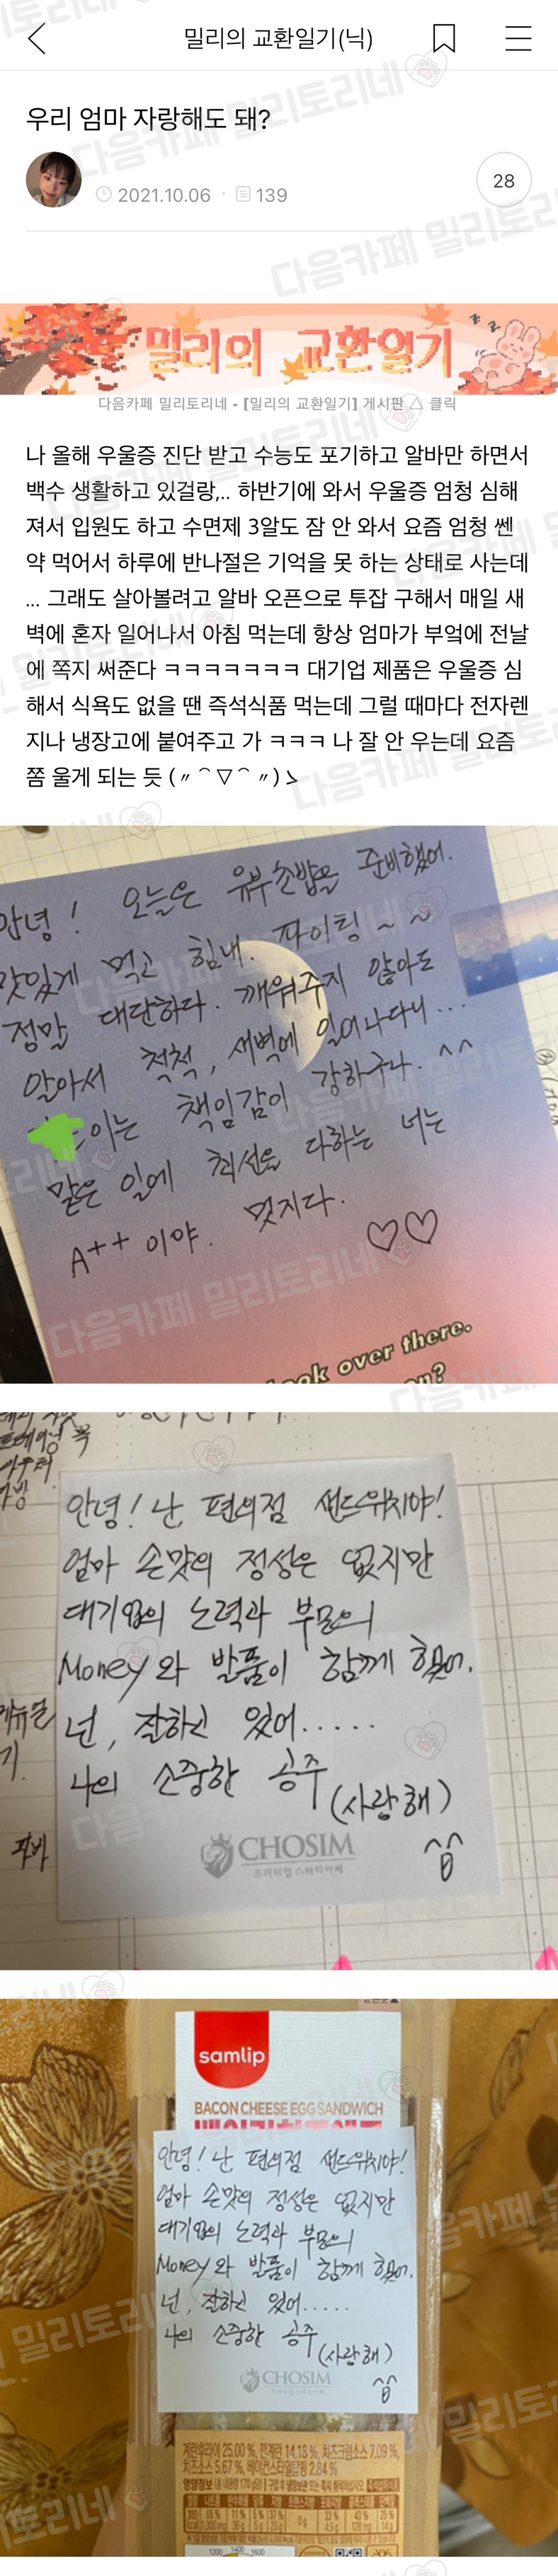 밀리의 교환일기(닉)
우리 엄마 자랑해도 돼?
2021.10.06 · 139
28
밀리의 교환일기
다음카페 밀리토리네 - [밀리의 교환일기] 게시판 △ 클릭
나 올해 우울증 진단 받고 수능도 포기하고 알바만 하면서
백수 생활하고 있걸랑,.. 하반기에 와서 우울증 엄청 심해
져서 입원도 하고 수면제 3알도 잠 안 와서 요즘 엄청 쎈
약 먹어서 하루에 반나절은 기억을 못 하는 상태로 사는데
... 그래도 살아볼려고 알바 오픈으로 투잡 구해서 매일 새
벽에 혼자 일어나서 아침 먹는데 항상 엄마가 부엌에 전날
에 쪽지 써준다 ㅋㅋㅋㅋㅋㅋㅋ 대기업 제품은 우울증 심
해서 식욕도 없을 땐 즉석식품 먹는데 그럴 때마다 전자렌
지나 냉장고에 붙여주고 가 ㅋㅋㅋ 나 잘 안 우는데 요즘
쫌 울게 되는 듯 (〃⌒▽⌒〃)ゝ
안녕! 오늘은 유부초밥을 준비했어.
맛있게 먹고 힘내. 파이팅~~
정말 대단하다. 깨워주지 않아도
알아서 척척, 새벽에 일어나다니...
이는 책임감이 강하구나. ^^
맡은 일에 최선을 다하는 너는
A++ 이야. 멋지다. ♡♡
look over there.
안녕! 난, 편의점 샌드위치야!
엄마 손맛의 정성은 없지만
대기업의 노력과 부모의
Money와 발품이 함께 했어.
넌, 잘하고 있어.....
나의 소중한 공주
(사랑해)
CHOSIM
프리미엄 스터디카페
samlip
BACON CHEESE EGG SANDWICH
안녕! 난 편의점 샌드위치야!
엄마 손맛의 정성은 없지만
대기업의 노력과 부모의
Money와 발품이 함께 했어.
넌, 잘하고 있어.....
나의 소중한 공주
(사랑해)
CHOSIM
프리미엄 스터디카페
계란후라이 25.00 %, 깐계란 14.18 %, 치즈크림소스 7.09 %,
치즈소스 5.67 %, 베이컨스타일토핑 2.84 %
영양정보
다음카페 밀리토리네